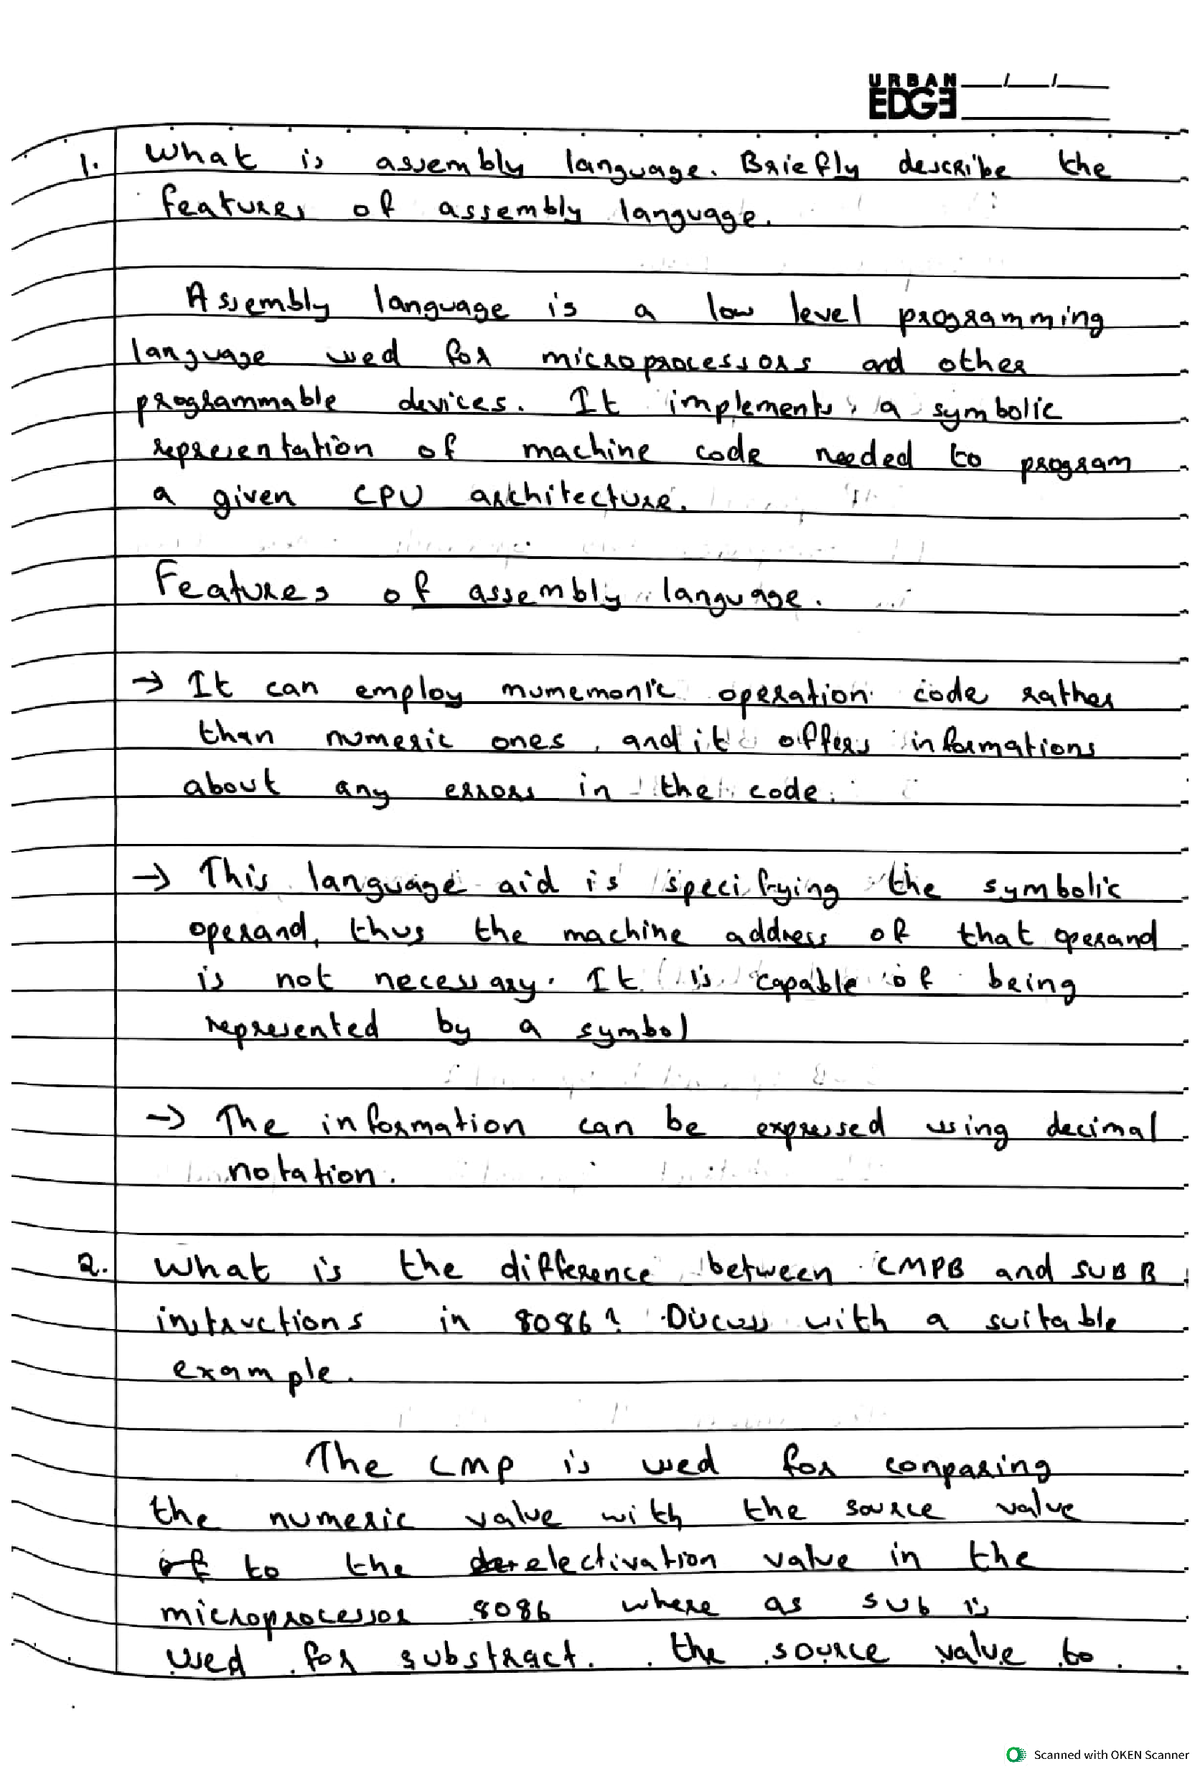 URBAN
EDGE
1. What is assembly language. Briefly describe the
features of assembly language.
Assembly language is a low level programming
language used for microprocessors and other
programmable devices. It implements a symbolic
representation of machine code needed to program
a given CPU architecture.
Features of assembly language.
→ It can employ mumemonic operation code rather
than numeric ones, and it offers informations
about any errors in the code.
→ This language aid is specifying the symbolic
operand, thus the machine address of that operand
is not necessary. It is capable of being
represented by a symbol
→ The information can be expressed using decimal
notation.
2. What is the difference between CMPB and SUBB
instructions in 8086? Discuss with a suitable
example.
The CMP is used for comparing
the numeric value with the source value
to the electivation value in the
microprocessor 8086 where as sub is
used for substract. the source value to
Scanned with OKEN Scanner